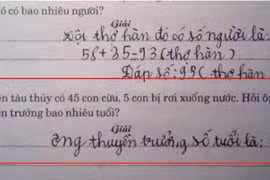 ó có bao nhiêu người?
Giải
Đội thợ hàn đó có số người là:
58 + 35 = 93 (thợ hàn)
Đáp số: 93 (thợ hàn
ên tàu thủy có 45 con cừu. 5 con bị rơi xuống nước. Hỏi ôn
ền trưởng bao nhiêu tuổi?
Giải
Ông thuyền trưởng số tuổi là: